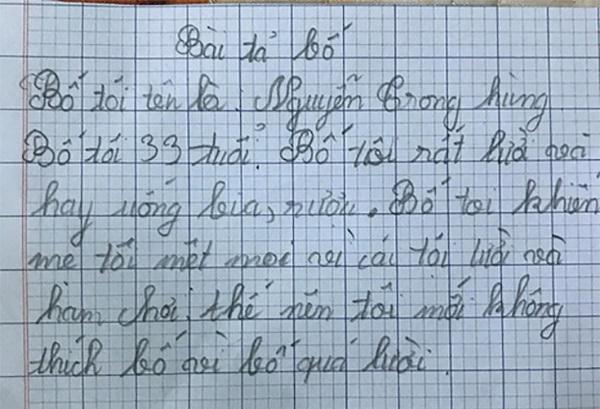 Bài tả bố
Bố tôi tên là Nguyễn Trọng hùng
Bố tôi 33 tuổi. Bố tôi rất lười và
hay uống bia, rượu. Bố tôi khiến
mẹ tôi mệt mỏi vì cái tối lười và
ham chơi, thế nên tôi mới không
thích bố vì bố quá lười.